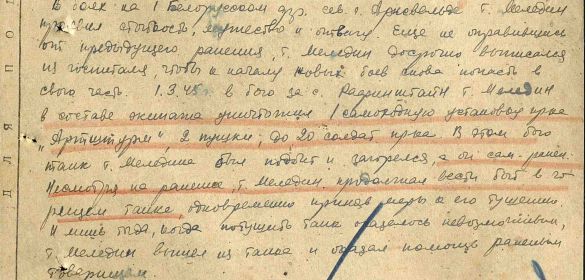 В боях на 1 Белорусском фр. сев. г. Арнсвальде т. Меледин
проявил стойкость, мужество и отвагу. Еще не оправившись
от предыдущего ранения, т. Меледин досрочно выписался
из госпиталя, чтобы к началу новых боев снова попасть в
свою часть. 1.3.45 г. в бою за с. т. Меледин
в составе экипажа уничтожил 1 самоходную установку пр-ка
"Артштурм", 2 пушки, до 20 солдат пр-ка. В этом бою
танк т. Меледина был подбит и загорелся, а он сам - ранен.
Несмотря на ранение, т. Меледин продолжал вести бой в го-
рящем танке, одновременно приняв меры к его тушению
и лишь тогда, когда потушить танк оказалось невозможным,
т. Меледин вышел из танка и оказал помощь раненым
товарищам
ДЛЯ ПО